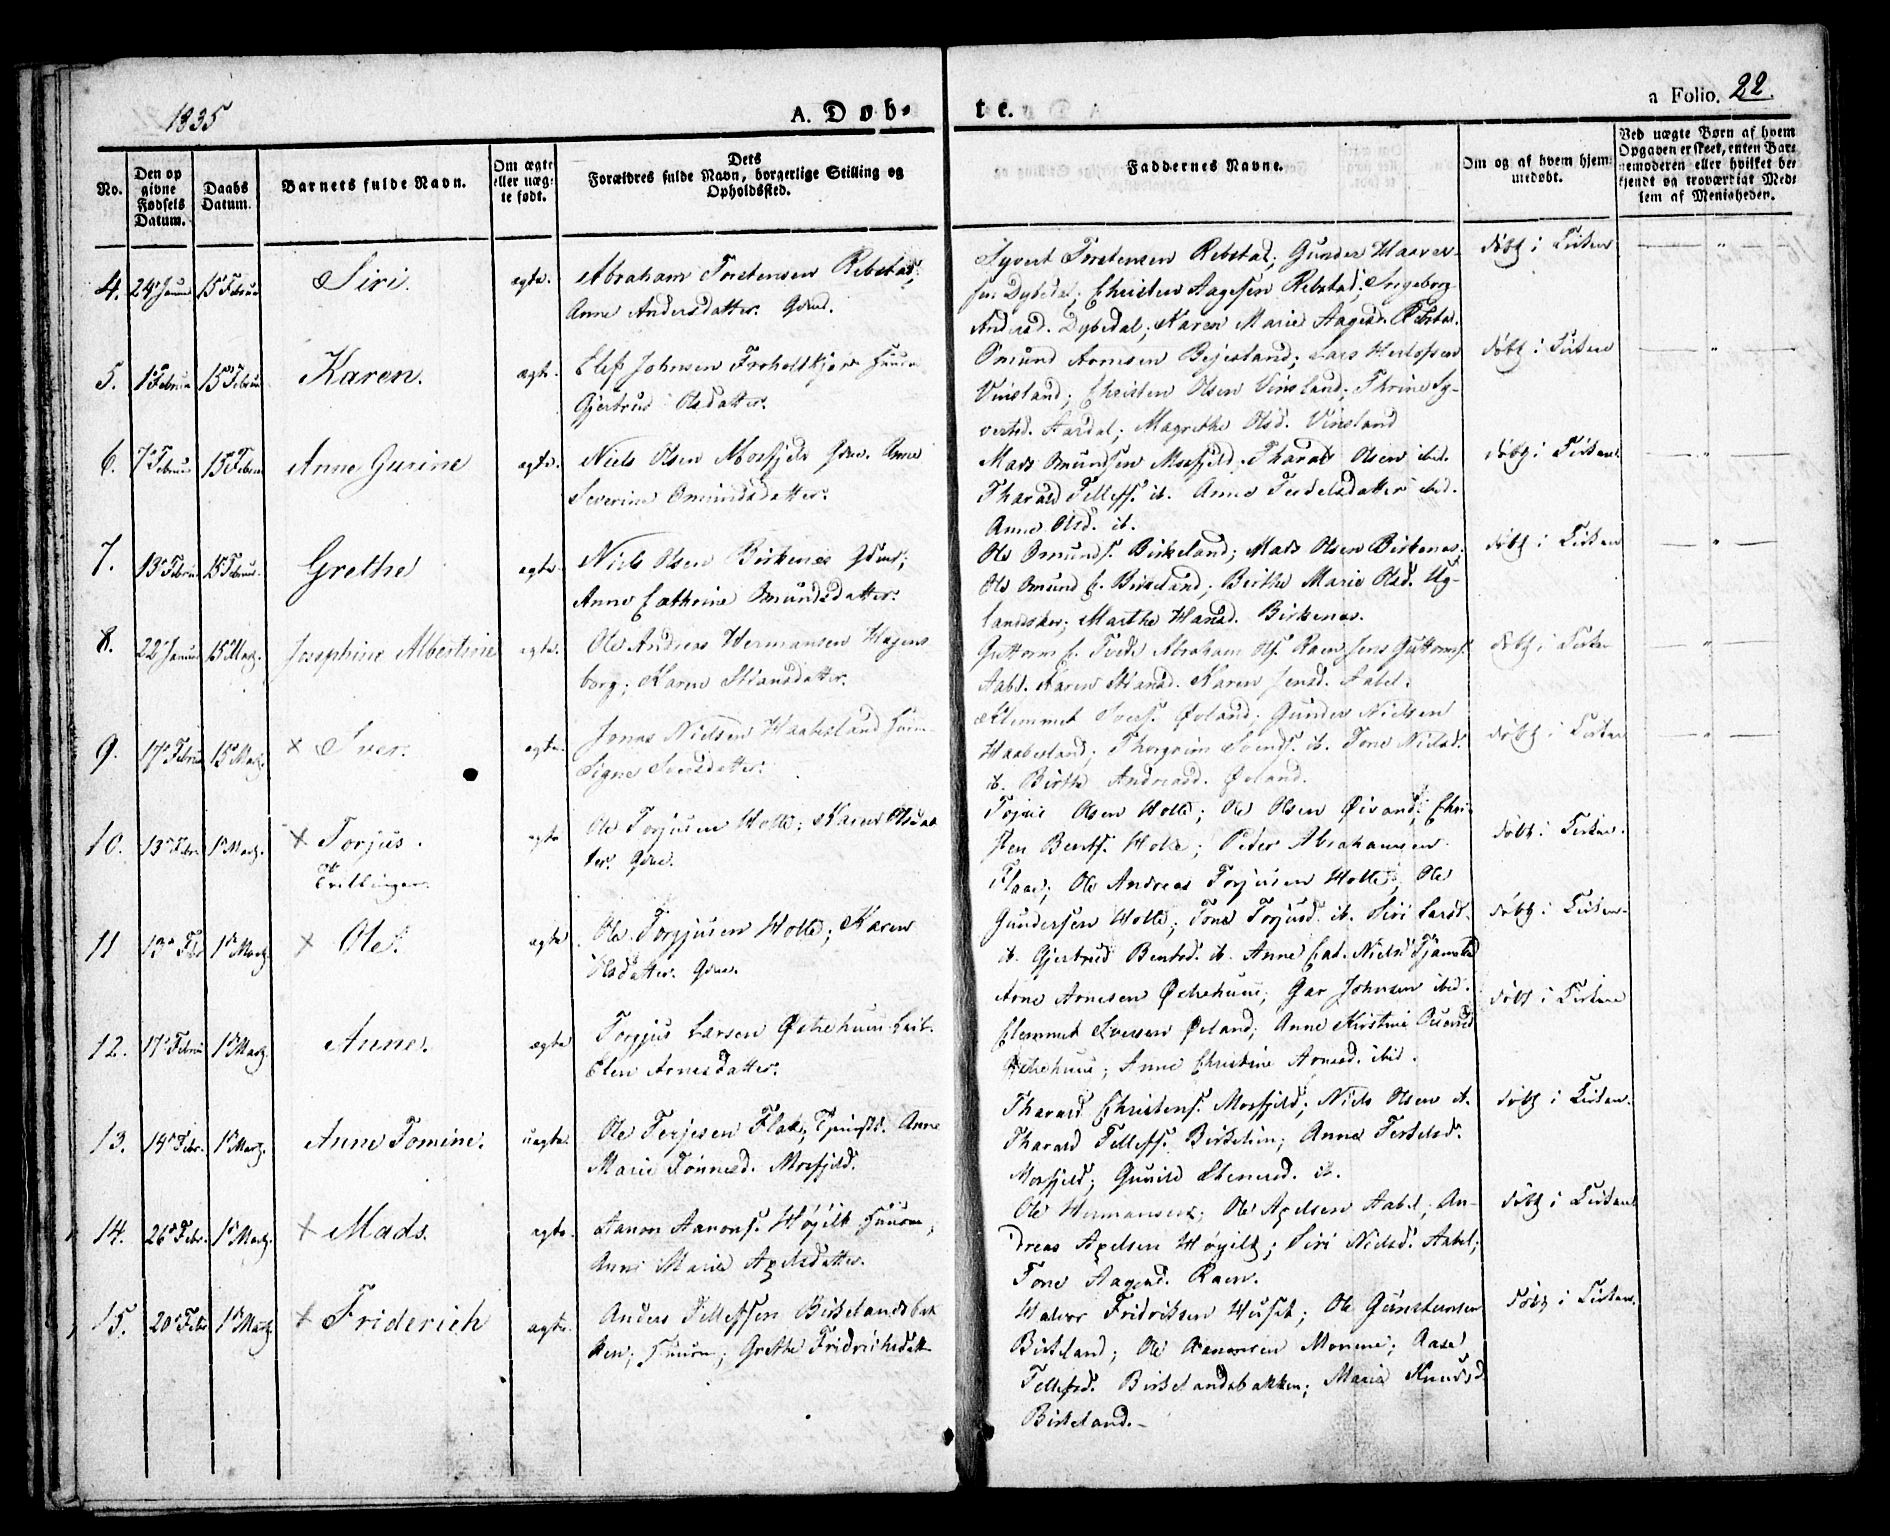 1835
A. Døb-
te.
a Folio. 22.
No.
Den op
givne
Fødsels
Datum.
Daabs
Datum.
Barnets fulde Navn.
Om ægte
eller uæg-
te født.
Dets
Forældres fulde Navn, borgerlige Stilling og
Opholdssted.
Faddernes Navne.
Om og af hvem hjem-
medøbt.
Ved uægte Børn af hvem
Opgaven er skeet, enten Bar-
nemoderen eller hvilket be-
kjendt og troværdigt Med-
lem af Menigheden.
4. 24 Januar 15 Februar Siri. ægte.
Abraham Torstensen Rebstad;
Anne Andersdatter. Gdmd.
Syvert Torstensen Rebstad; Gunder Haavor-
sen Dybedal; Christen Aagesen Rebstad; Ingeborg
Andersd. Dybedal; Karen Marie Aagesd. Rebstad.
døbt i Kirken
5. 1 Februar 15 Februar Karen. ægte.
Elef Johnsen Froholtkjær Huusm
Gjertrud Olsdatter.
Omund Arnesen Bejesland; Lars Herlofsen
Vinsland; Christen Olsen Vinsland; Thrine Sy-
vertsd. Aardal; Magrethe Olsd. Vinsland
døbt i Kirken
6. 7 Februar 15 Februar Anne Gurine ægte.
Niels Olsen Mosfjeld Gdm. Anne
Severine Omundsdatter.
Mads Omundsen Mosfjeld; Tharald Olsen ibid.
Tharald Tellefs. ib. Anne Terkelsdatter ibid.
Anne Olsd. ib.
døbt i Kirken
7. 13 Februar 15 Februar. Grethe ægte.
Niels Olsen Birkenes Gdmd;
Anne Cathrine Omundsdatter.
Ole Omunds. Birkeland; Mads Olsen Birkenes;
Ole Omund C. Birkeland; Birthe Marie Olsd. Ug-
landsker; Marthe Hansd. Birkenes.
døbt i Kirken
8. 22 Januar 15 Martz. Josephine Albertine ægte.
Ole Andreas Hermansen Hagens
borg; Karen Stiansdatter.
Guttorm C. Tvede Abraham Ols. Raen Jens Guttorms.
Aabel. Karen Stiansd. Karen Jensd. Aabel.
døbt i Kirken
9. 17 Februar 15 Martz. × Iver. ægte.
Jonas Nielsen Haabesland Huusm
Signe Iversdatter.
Clemmet Ivers. Øvland; Gunder Nielsen
Haabesland; Thorgrim Svends. ib. Tone Nielsd.
ib. Birthe Andreasd. Øvland.
døbt i Kirken
10. 13 Febr. 1 Martz. × Torjus. ægte
Tvillinger.
Ole Torjusen Holte; Karen Olsdat
ter. Gdmd.
Tojus Olsen Holte; Ole Olsen Øivand; Chri-
sten Bents. Holte; Peder Abrahamsen
Flaae; Ole Andreas Torjusen Holte; Ole
døbt i Kirken.
11 13 Febr 1 Martz. × Ole. ægte.
Ole Torgjusen Holte; Karen
Olsdatter. Gdmd.
Gundersen Holte; Tone Torjusd. ib. Siri Larsd.
ib. Gjertrud Bentsd. ib. Anne Cat. Nielsd Tjamsla
døbt i Kirken.
12. 17 Februar 1 Martz. Anne. ægte
Torgjus Larsen Østrehuus Leil.
Elen Arnesdatter.
Arne Arnesen Østrehuus; Gar Johnsen ibid.
Clemmet Iversen Øvland; Anne Kirstine
Østrehuus; Anne Christine Arnesd. ibid.
døbt i Kirken
13. 14 Febr. 1 Martz. Anne Tomine. uægte.
Ole Terjesen Flak; Anne
Marie Tønnesd. Mosfjeld.
Tharald Christens. Mosfjeld; Niels Olsen ib.
Tharald Tellefs. Birkelien; Anne Terkelsd.
Mosfjeld; Gunild Stenersd. ib.
døbt i Kirken.
14. 26 Febr. 1 Martz. × Mads. ægte.
Aanon Aanons. Høgilt Huusm;
Anne Marie Axelsdatter.
Ole Hermansen; Ole Axelsen Aabel; An-
dreas Axelsen Høgilt; Siri Nielsd. Aabel;
Tone Aagesd. Raen.
døbt i Kirken
15. 20 Febr 1 Martz. × Friderich ægte.
Anders Tellefsen Birkelandsbak
ken; Huusm; Grethe Fridrichsdatt
Halvor Fridriksen Huset; Ole Gunstensen
Birkeland; Ole Aanonsen Mommi; Aase
Tellefsd. Birkelandsbakken; Marie Knudsd
Birkeland.
døbt i Kirken.